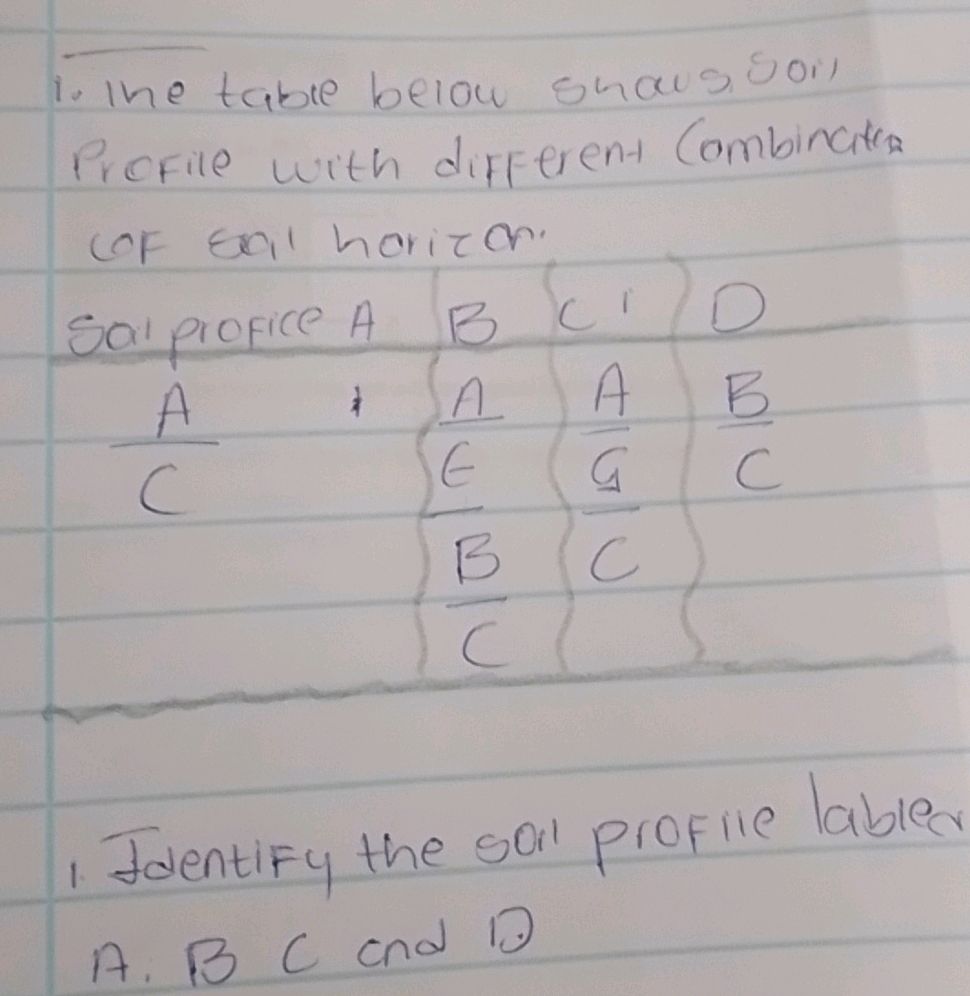 1. The table below shows soil
Profile with different Combination
of soil horizon.
Soil profice A B C D
A A A B
C E G C
B C
C
1. Identify the soil profile labled
A. B C and D